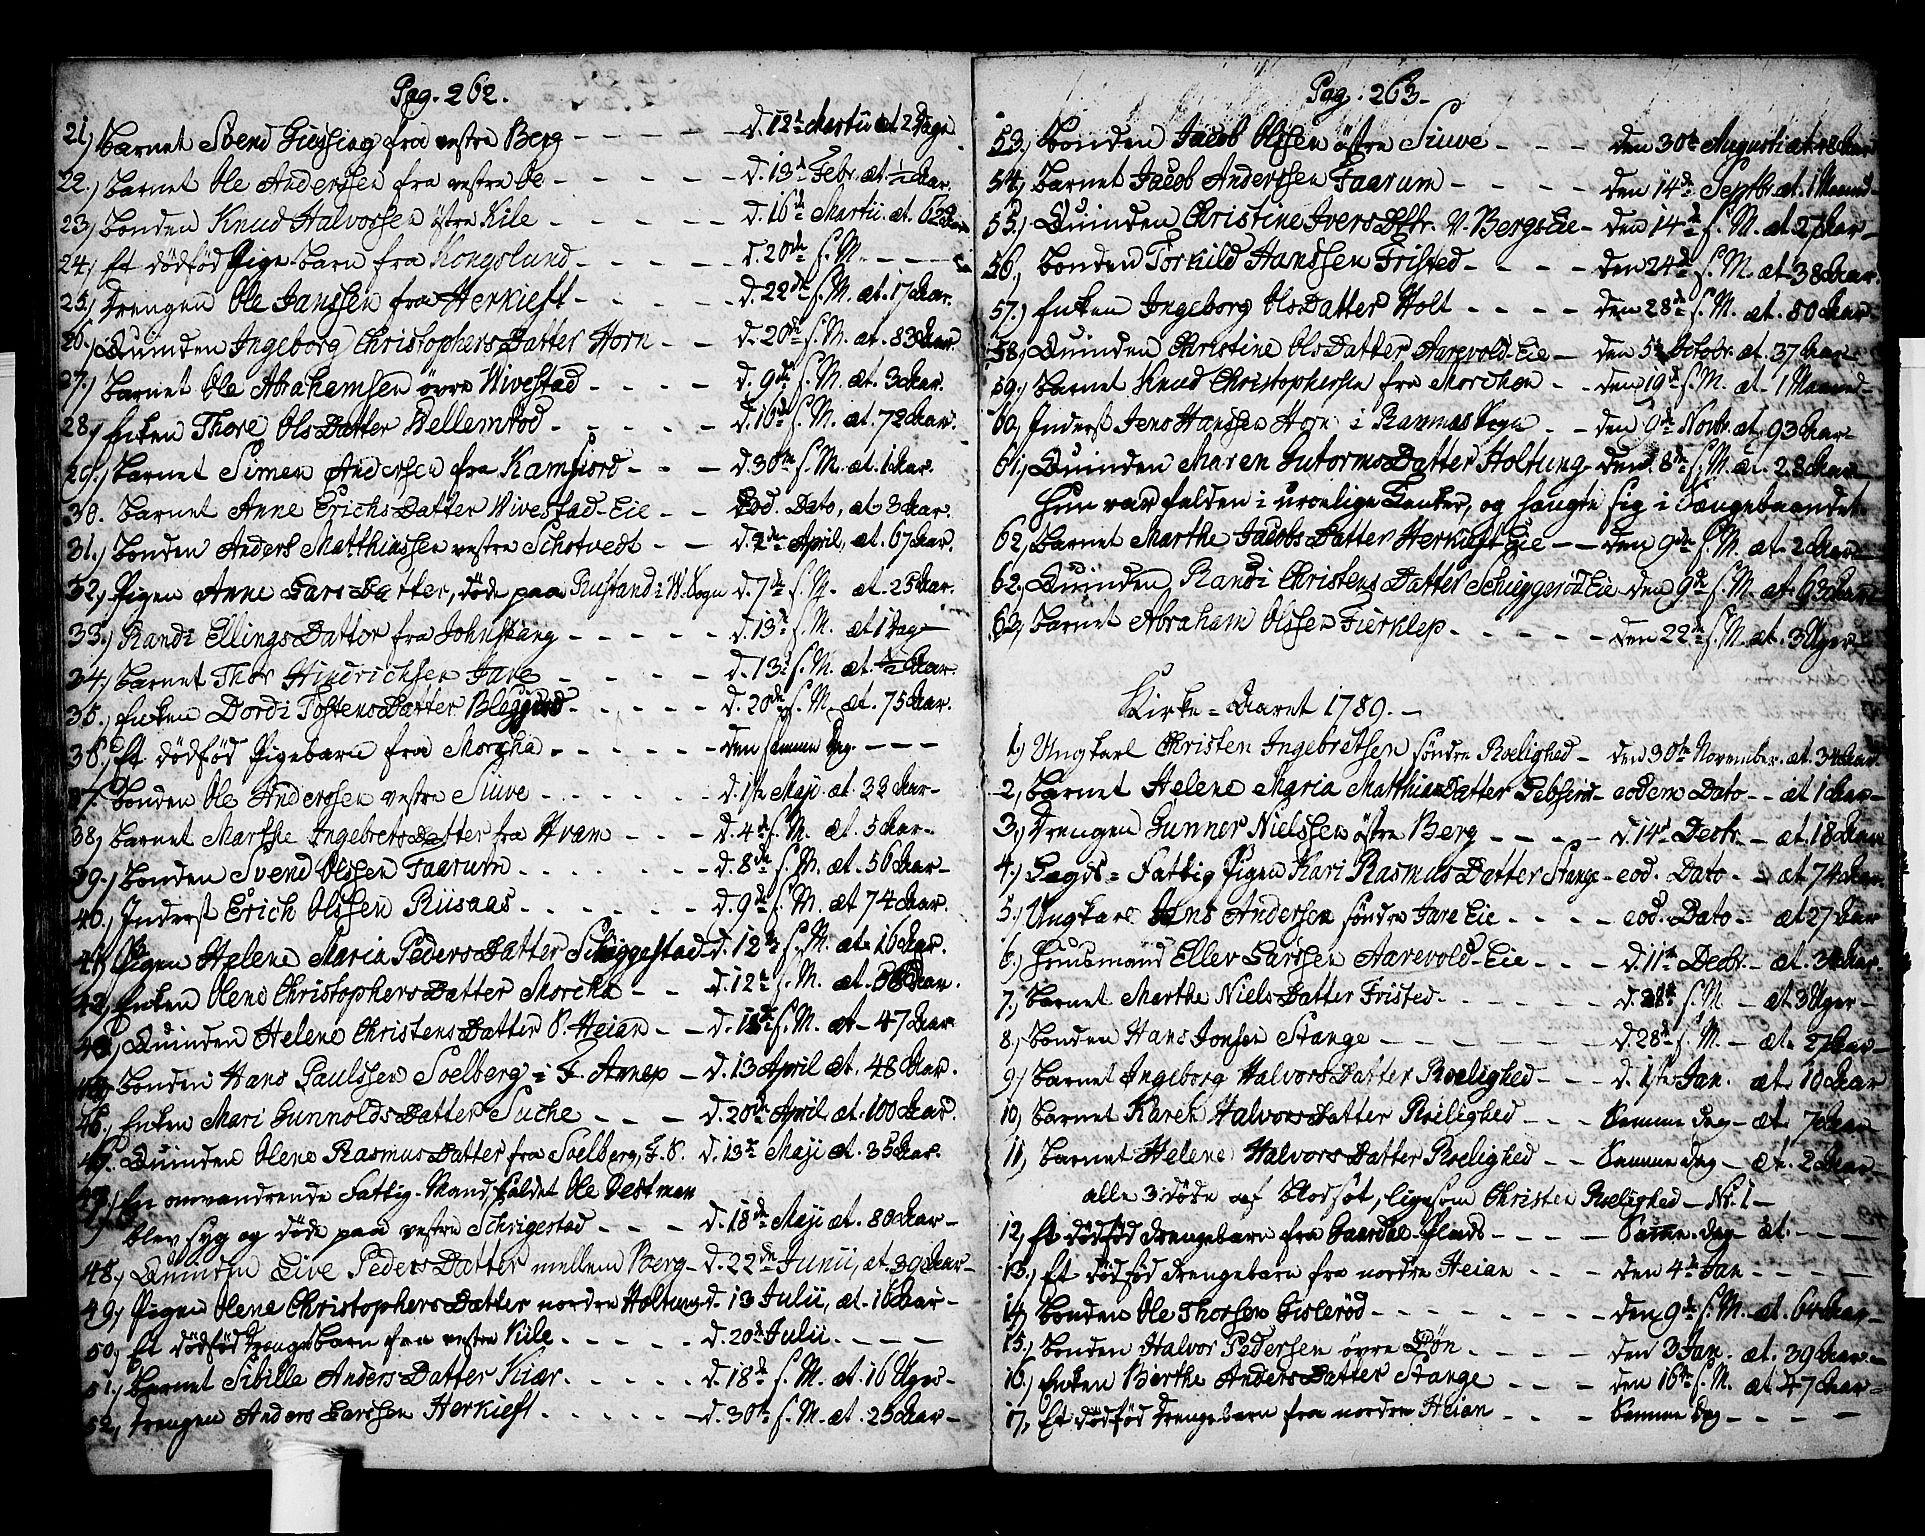 Pag. 262.
21.) Barnet Svend Giessing fra vestre Berg - - - - - d. 12te Martii æt 2 Dage
22.) Barnet Ole Anderssen fra vestre Øe - - - - - d. 13de Febr. æt. ½ Aar.
23.) Bonden Knud Halvorssen østre Kile - - - - - d. 16de Martii. æt. 62 Aar
24.) Et dödföd Pige Barn fra Kongslund - - - - - d. 20de s. M. - - - -
25.) Drengen Ole Janssen fra Herkieft - - - - - d. 22de s. M. æt. 17 Aar.
26.) Quinden Ingeborg Christophers Datter Horn - - d. 20de s. M. æt. 83 Aar.
27.) Barnet Ole Abrahamsen övre Wivestad - - - - d. 9de s. M. æt. 3 Aar.
28.) Enken Thore Ols Datter Bellemröd - - - - - d. 16de s. M. æt. 72 Aar.
29.) Barnet Simen Anderssen fra Kamfiord - - - d. 30te s. M. æt. 1 Aar.
30. Barnet Anne Erichs Datter Wivestad-Eie - - Eod. Dato, æt 3 Aar.
31.) Bonden Anders Matthiassen vestre Schotvedt - - d. 2den April, æt. 67 Aar.
32.) Pigen Anne Lars Datter, döde paa Rustand i W. Sogn d. 7de s. M. æt. 25 Aar.
33.) Randi Ellings Datter fra Johnskang - - - - - d. 13de s. M. æt 1 Dag
34.) Barnet Thor Hindrichsen Jare - - - - - d. 13de s. M. æt. ½ Aar.
35.) Enken Dordi Tostens Datter - - - - - d. 20de s. M. æt. 75 Aar.
36.) Et dödföd Pigebarn fra Morcha - - - - - den samme Dag - - -
37.) Bonden Ole Anderssen vestre Siuve - - - - - d. 1ste Maji æt. 32 Aar -
38.) Barnet Marthe Ingebrets Datter fra Hvam - - - d. 4de s. M. æt. 5 Aar -
39.) Bonden Svend Olssen Faarum - - - - - - d. 8de s. M. æt. 56 Aar -
40.) Inderst Erich Olssen Riisaas - - - - - d. 9de s. M. æt 74 Aar.
41.) Pigen Helene Maria Peders Datter Schiggestad d. 12te s. M. æt. 16 Aar.
42.) Enken Olene Christophers Datter Morcha - - d. 12te s. M. æt. Aar.
43.) Quinden Helene Christens Datter S. Heian - - d. s. M. æt - 47 Aar
Bonden Hans Paulssen Soelberg i F. Annex - d. 13 April æt. 48 Aar.
Enken Mari Gunnolds Datter Suche - - - d. 20de April æt. 100 Aar.
Quinden Olene Rasmus Datter fra Soelberg, F. S. d. 13te Maji æt. 35 Aar.
47.) En omvandrende Fattig-Mand, kaldet Ole Destman
blev syg og döde paa vestre Schigestad - - - d. 18de Maji æt. 80 Aar -
48.) Quinden Live Peders Datter mellem Berg - d. 22de Junii, æt. 39 Aar -
49.) Pigen Olene Christophers Datter nordre Holtung d. 13 Julii, æt. 16 Aar -
50.) Et dödföd Drengebarn fra vestre Kiile - - - - d. 20de Julii - - - -
51.) Barnet Sibille Anders Datter Kiær - - - - - d. 18de s. M. æt. 16 Uger -
52.) Drengen Anders Larssen Herkieft - - - - - d. 30te s. M. æt. 25 Aar -
Pag. 263.
53.) Bonden Jacob Olssen östre Siuve - - - den 30te Augusti æt. 48 Aar
54.) Barnet Jacob Anderssen Faarum - - - - den 14de Septbr. æt. 1 Maaned -
55.) Quinden Christine Ivers Dttr. V. Bergs Eie - den 14de s. M. æt. 27 Aar -
56.) Bonden Torkild Hanssen Fristed - - - - den 24de s. M. æt. 38 Aar.
57.) Enken Ingeborg Ols Datter Holt - - - - den 28de s. M. æt. 80 Aar
58.) Quinden Christine Ols Datter Aarevold-Eie - den 5te Octobr. æt. 37 Aar -
59.) Barnet Knud Christophersen fra Morchen - - den 19de s. M. æt - 1 Maaned -
60.) Inderst Jens Hanssen Horn i Ramnæs Sogn - - den 9de Novbr. æt. 93 Aar -
61.) Quinden Maren Gutorms Datter Holtung - den 18de s. M. æt. 28 Aar -
Hun var falden i uroelige Tanker, og hængte sig i Sængebaandet
62.) Barnet Marthe Jacobs Datter Herkieft Eie - - den 9de s. M. æt. 2 Aar -
62. Quinden Randi Christens Datter Schieggeröd Eie den 9de s. M. æt. 63 Aar
63.) Barnet Abraham Olssen Fierklep - - - - - den 22de s. M. æt. 3 Uger -
Kirke-Aaret 1789. -
1.) Ungkarl Christen Ingebretsen söndre Roelighed - den 30te November. æt. 34 Aar
2.) Barnet Helene Maria Matthias Datter - eodem Dato - - æt 1 Aar -
3.) Drengen Gunner Nielssen östre Berg - - - - d. 14de Decbr. - æt. 18 Aar
4.) Lægds-Fattig Pigen Kari Rasmus Datter Stange - eod. Dato - æt 74 Aar.
5.) Ungkarl Jens Andersen söndre Jare Eie - - - - eod. Dato - æt 27 Aar
6.) Huusmand Ellev Larssen Aarevold-Eie - - - d. 11te Decbr. - æt. 34 Aar.
7.) Barnet Marthe Niels Datter Fristed - - - - - d. s. M - æt 3 Uger -
8.) Bonden Hans Jonsen Stange - - - - - - d. 28de s. M. - æt. 27 Aar -
9.) Barnet Ingeborg Halvors Datter Roelighed - - - d. 1ste Jan. æt. 10 Aar
10.) Barnet Karen Halvors Datter Roelighed - - - Samme dag - æt. 7 Aar -
11.) Barnet Helene Halvors Datter Roelighed - - Samme dag - æt. 2 Aar -
alle 3 döde af Blodsot, ligesom Christen Roelighed - Nr. 1 -
12.) Et dödföd Drengebarn fra Gaasdal-Plads - - - - Samme dag - æt. - - -
13.) Et dödföd Drengebarn fra nordre Heian - - - den 4de Jan - - - - -
14.) Bonden Ole Thorssen Gislerød - - - - - - den 9de s. M. - æt. 64 Aar -
15.) Bonden Halvor Pedersen övre Døn - - - - den 3 Jan. æt. 39 Aar. -
16.) Enken Berthe Anders Datter Stange - - - den 16te s. M. æt 47 Aar -
17.) Et dödföd Drengebarn fra nordre Heian - - - Samme Dag - - - - -